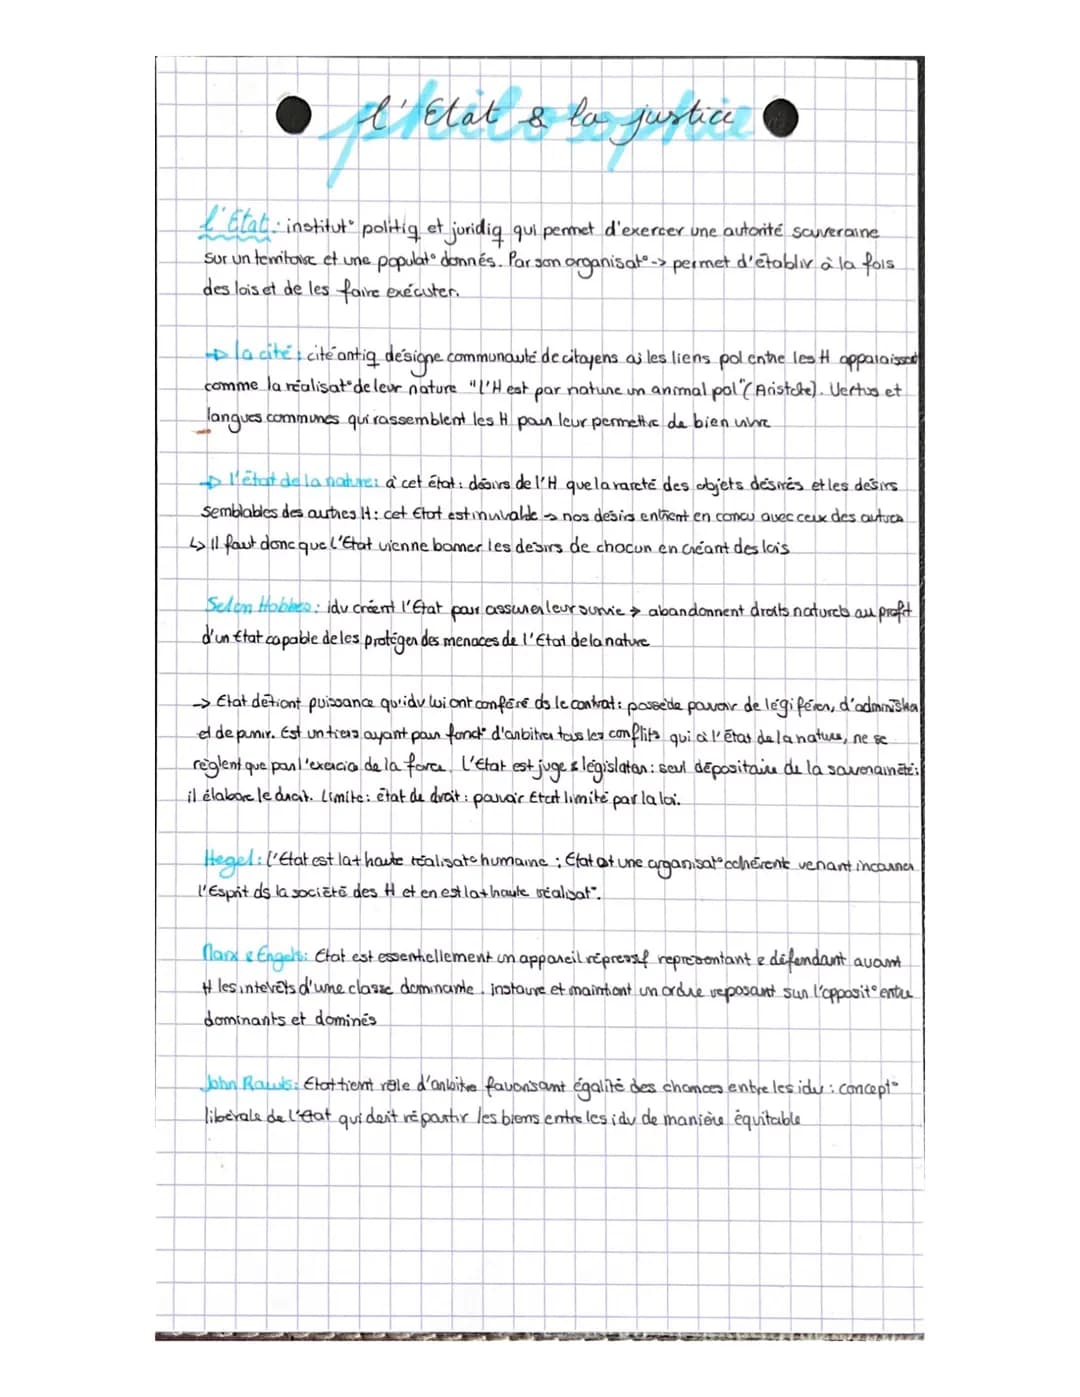 philosophie
l'Etat & la justice
l'Etat : institut° politiq et juridiq qui permet d'exercer une autorité souveraine
sur un territoire et une populat° donnés. Par son organisat° -> permet d'établir à la fois
des lois et de les faire exécuter.
→ la cité : cité antiq désigne communauté de citoyens où les liens pol entre les H apparaissent
comme la réalisat° de leur nature "l'H est par nature un animal pol" (Aristote). Vertus et
langues communes qui rassemblent les H pour leur permettre de bien vivre
→ l'état de la nature : à cet état : désirs de l'H que la rareté des objets désirés et les désirs
semblables des autres H : cet Etat est invivable → nos désirs entrent en concu avec ceux des autres
↳ Il faut donc que l'Etat vienne borner les désirs de chacun en créant des lois
Selon Hobbes : idv créent l'Etat pour assurer leur survie → abandonnent droits naturels au profit
d'un Etat capable de les protéger des menaces de l'Etat de la nature
-> Etat détient puissance qu'idv lui ont conféré ds le contrat : possède pouvoir de légiférer, d'administrer
et de punir. Est un tiers ayant pour fonct° d'arbitrer tous les conflits qui à l'état de la nature, ne se
règlent que par l'exercice de la force. L'Etat est juge & législateur : seul dépositaire de la souveraineté :
il élabore le droit. Limite : état de droit : pouvoir Etat limité par la loi.
Hegel : l'Etat est la + haute réalisat° humaine ; Etat est une organisat° cohérente venant incarner
l'Esprit ds la société des H et en est la + haute réalisat°.
Marx & Engels : Etat est essentiellement un appareil répressif représentant & défendant avant
tt les intérêts d'une classe dominante. instaure et maintient un ordre reposant sur l'opposit° entre
dominants et dominés
John Rawls : Etat tient rôle d'arbitre favorisant égalité des chances entre les idv : concept°
libérale de l'Etat qui doit répartir les biens entre les idv de manière équitable